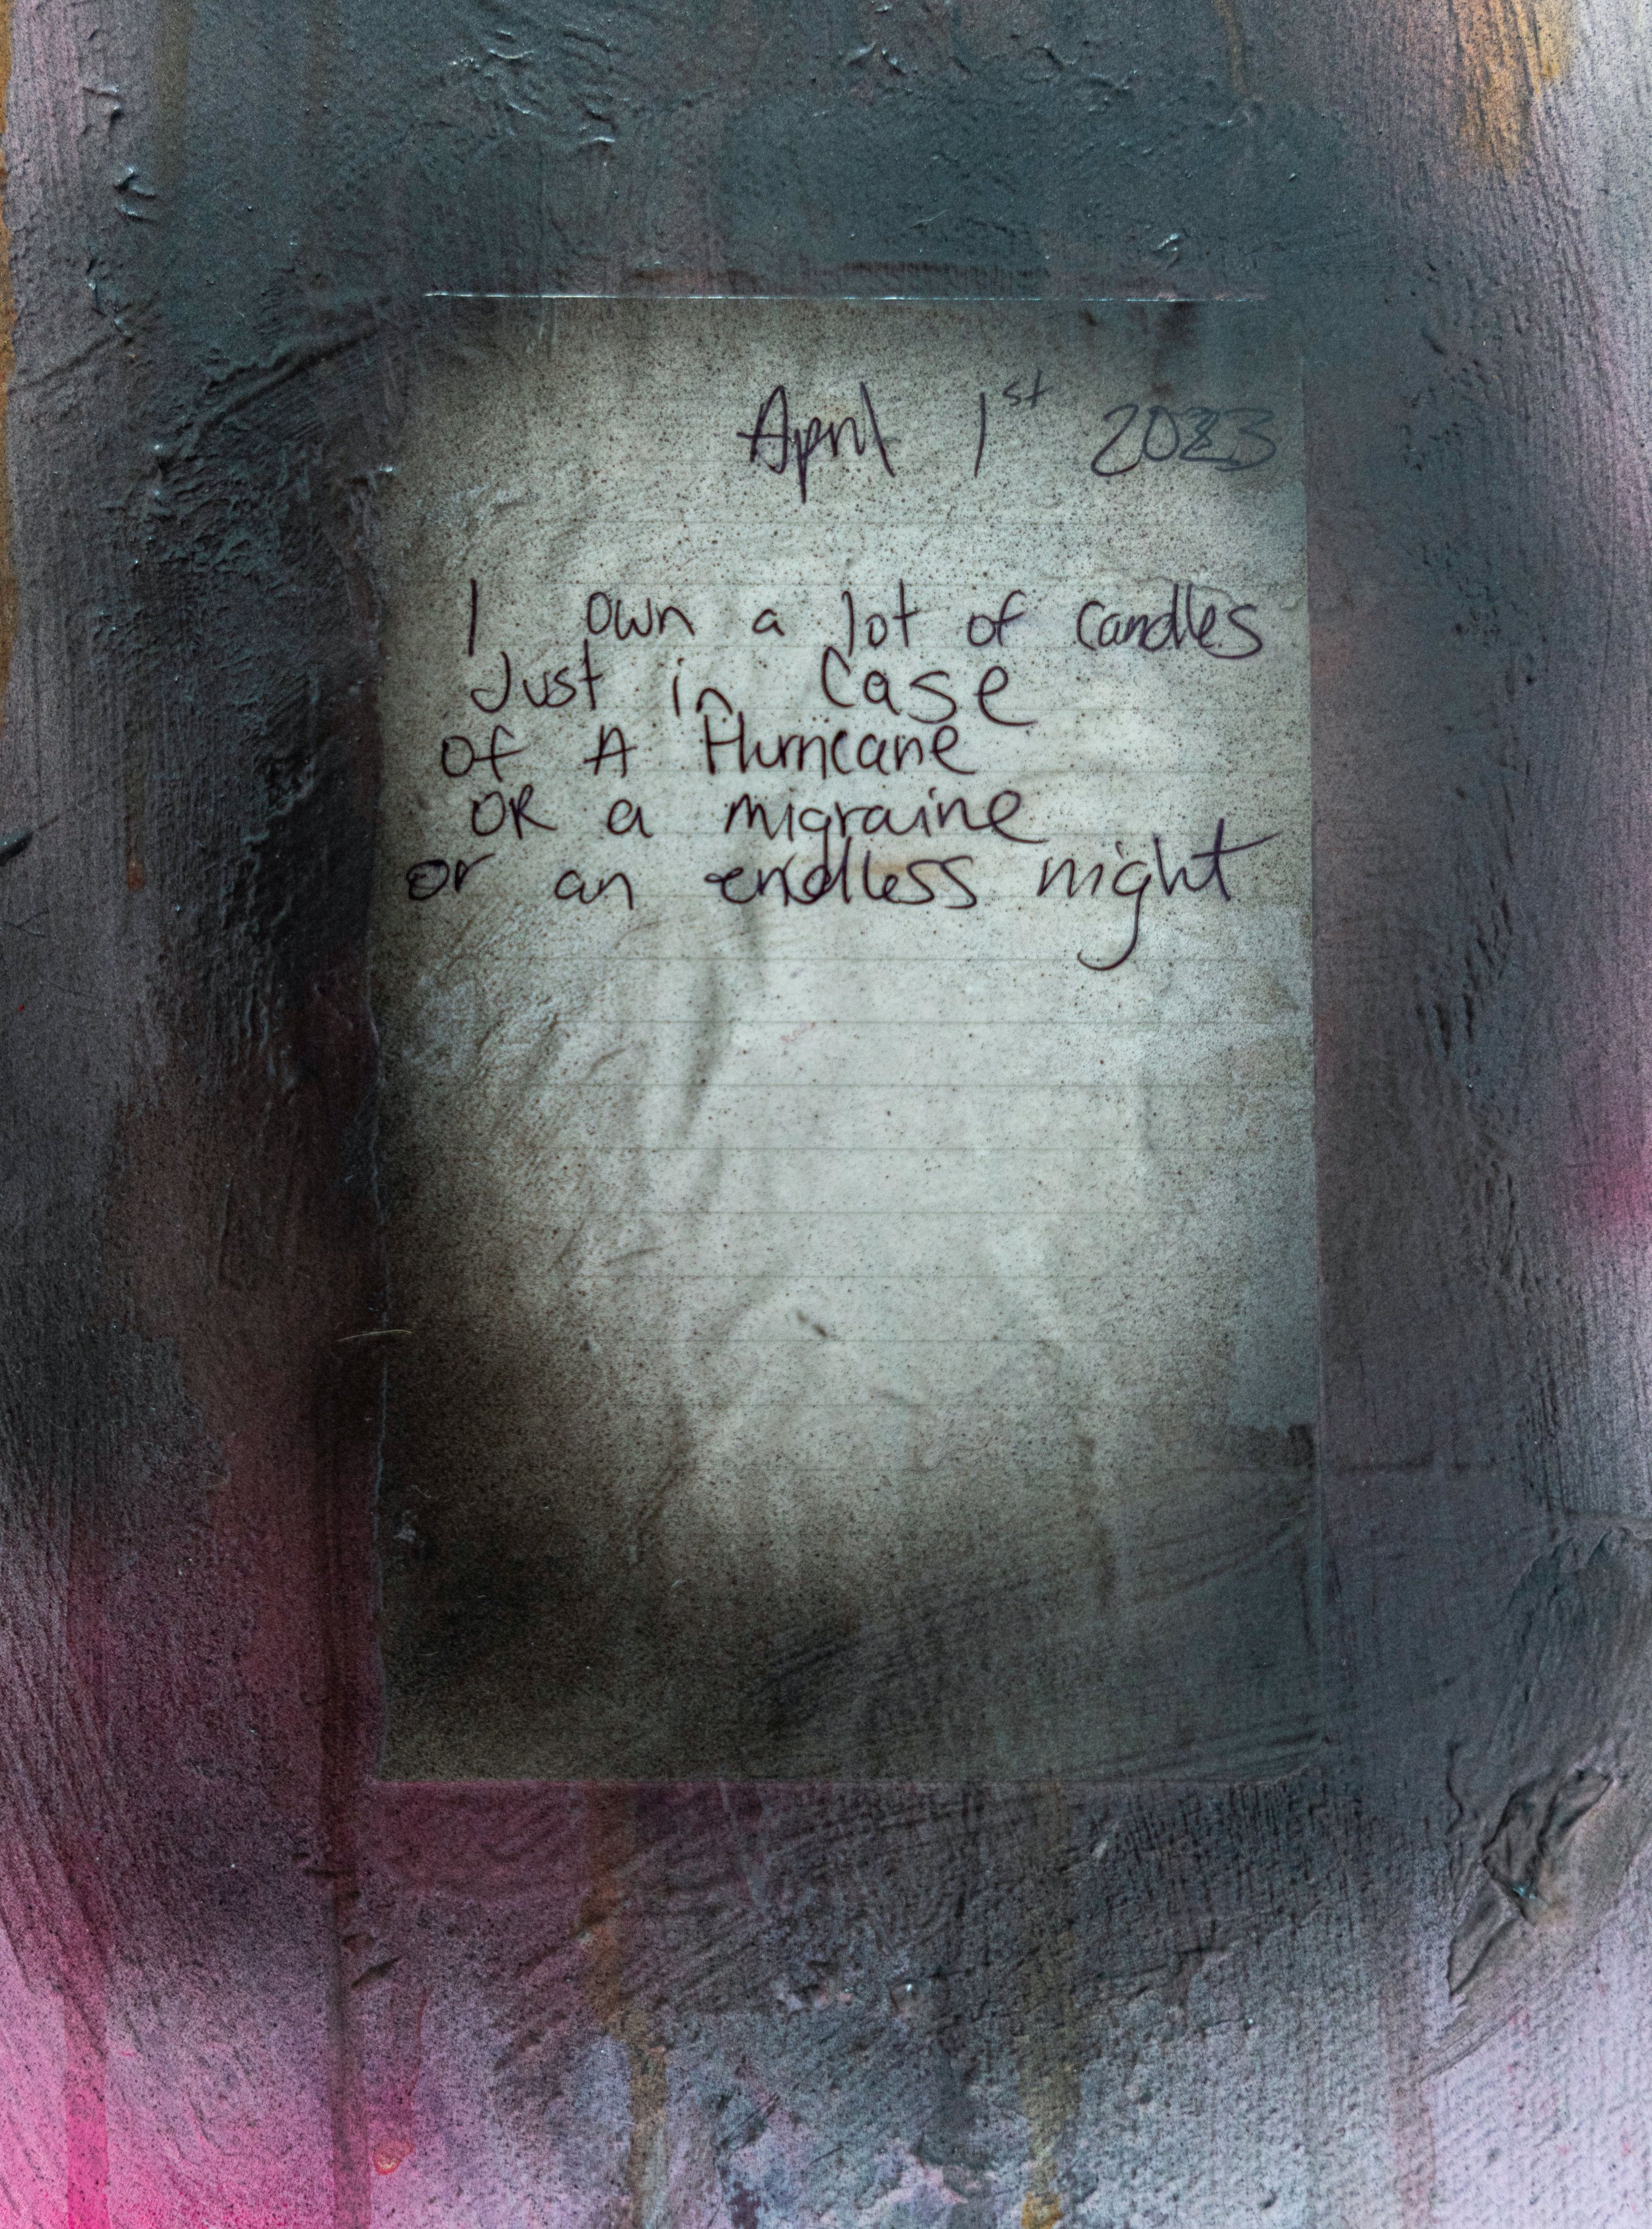 April 1st 2023
I own a lot of candles
Just in Case
Of A Hurricane
OR a migraine
or an endless night